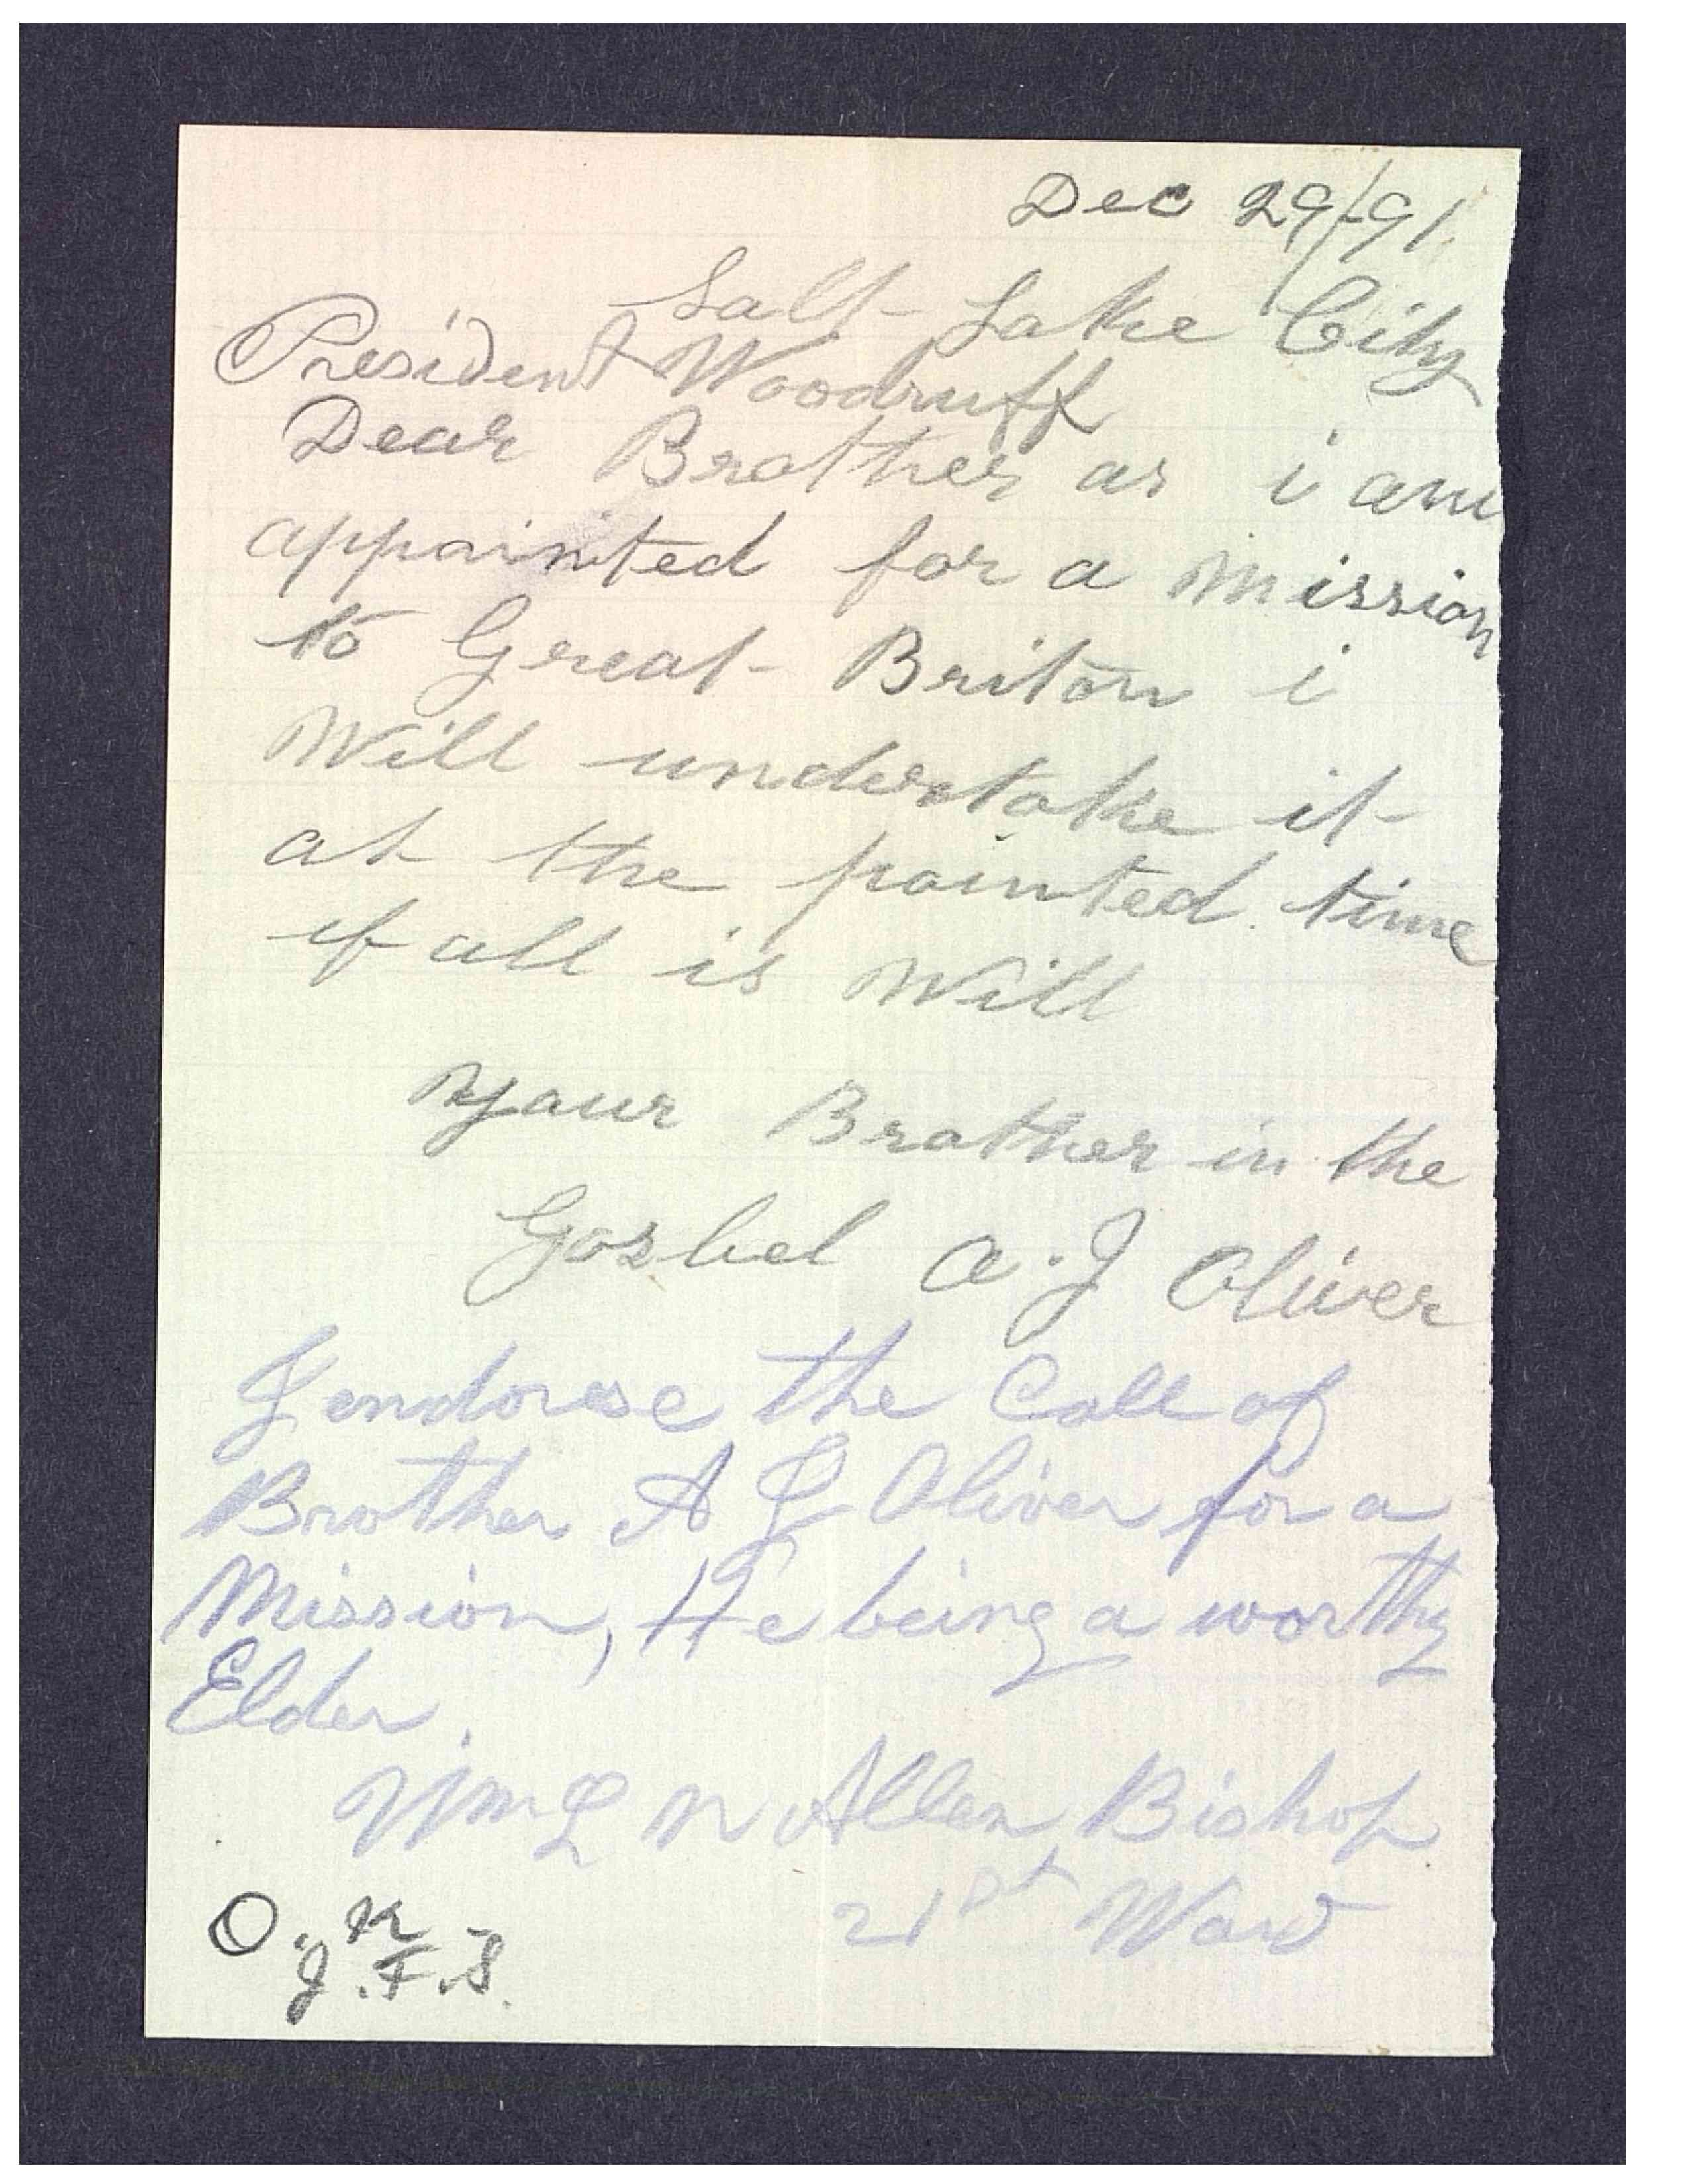 Dec 29/91
Salt Lake City
President Woodruff
Dear Brother as i am
appointed for a Mission
to Great Briton i
Will undertake it
at the pointed time
if all is Will
Your Brother in the
Gosbel A. J Oliver
I endorse the Call of
Brother A J Oliver for a
Mission, He being a worthy
Elder.
Wm L N Allen Bishop
21st Ward
O. K
J. F. S.